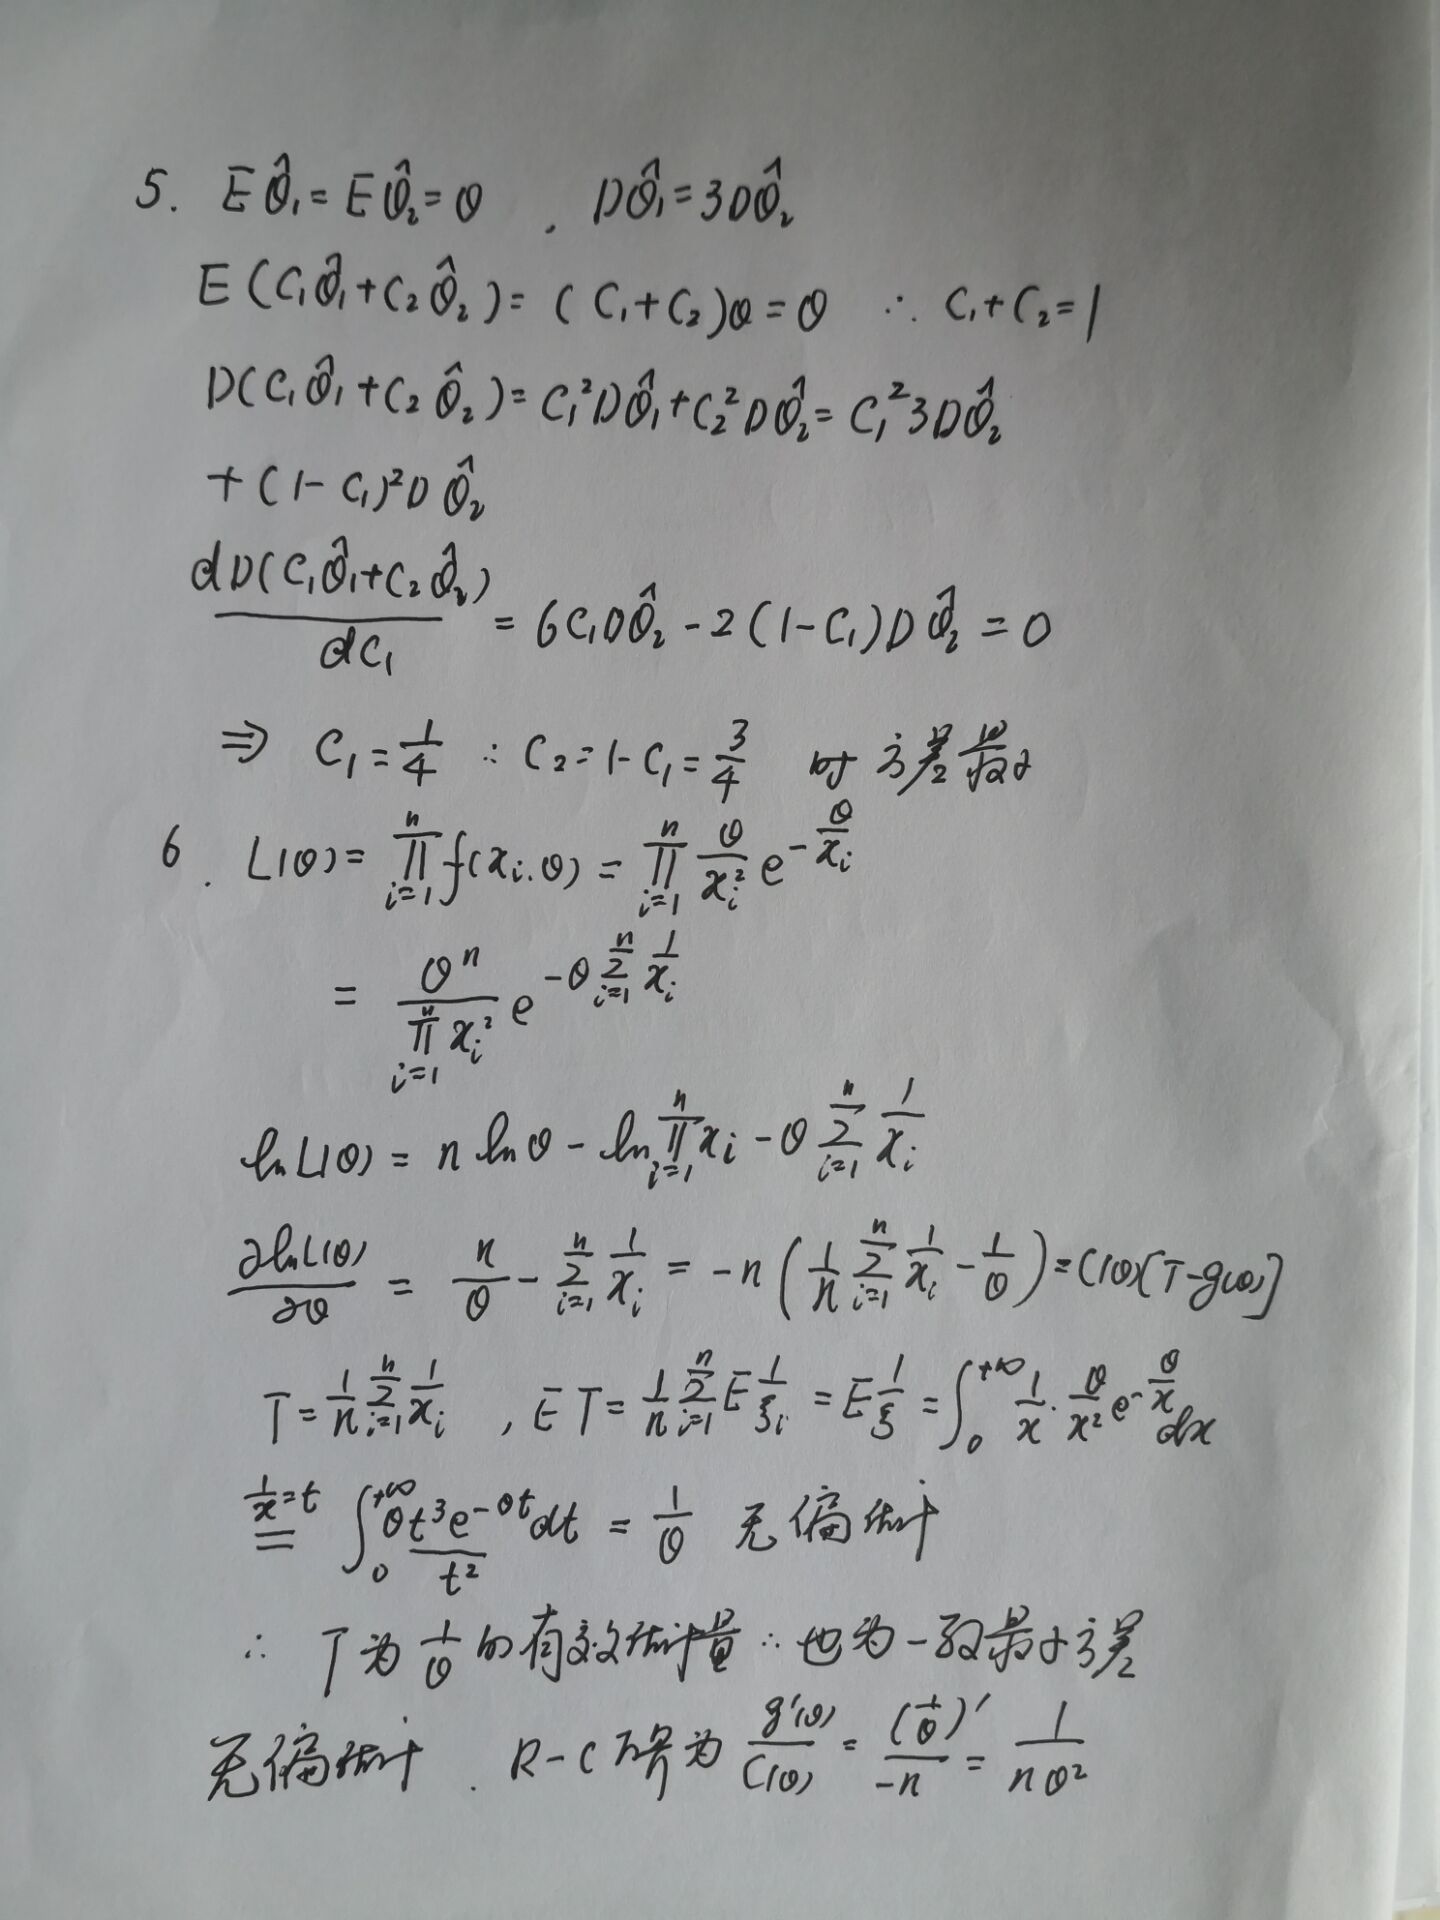 5. Eθ̂₁=Eθ̂₂=θ , Dθ̂₁=3Dθ̂₂
E(C₁θ̂₁+C₂θ̂₂)=(C₁+C₂)θ=θ ∴ C₁+C₂=1
D(C₁θ̂₁+C₂θ̂₂)=C₁²Dθ̂₁+C₂²Dθ̂₂=C₁²3Dθ̂₂
+(1-C₁)²Dθ̂₂
dD(C₁θ̂₁+C₂θ̂₂)/dC₁ = 6C₁Dθ̂₂-2(1-C₁)Dθ̂₂=0
⇒ C₁=1/4 ∴ C₂=1-C₁=3/4 时方差最小
6. L(θ)=∏_{i=1}^{n} f(x_i.θ)=∏_{i=1}^{n} θ/x_i² e^{-θ/x_i}
= θⁿ/∏_{i=1}^{n} x_i² e^{-θ∑_{i=1}^{n} 1/x_i}
lnL(θ)=n lnθ-ln∏_{i=1}^{n} x_i-θ∑_{i=1}^{n} 1/x_i
∂lnL(θ)/∂θ = n/θ-∑_{i=1}^{n} 1/x_i=-n(1/n ∑_{i=1}^{n} 1/x_i-1/θ)=C(θ)[T-g(θ)]
T=1/n ∑_{i=1}^{n} 1/x_i , ET=1/n ∑_{i=1}^{n} E 1/ξ_i=E 1/ξ=∫_0^{+∞} 1/x·θ/x² e^{-θ/x}dx
1/x=t = ∫_0^{+∞} θt³e^{-θt}/t² dt=1/θ 无偏估计
∴ T为1/θ的有效估计量∴也为一致最小方差
无偏估计. R-C下界为 g'(θ)/C(θ)=(1/θ)'/-n=1/nθ²